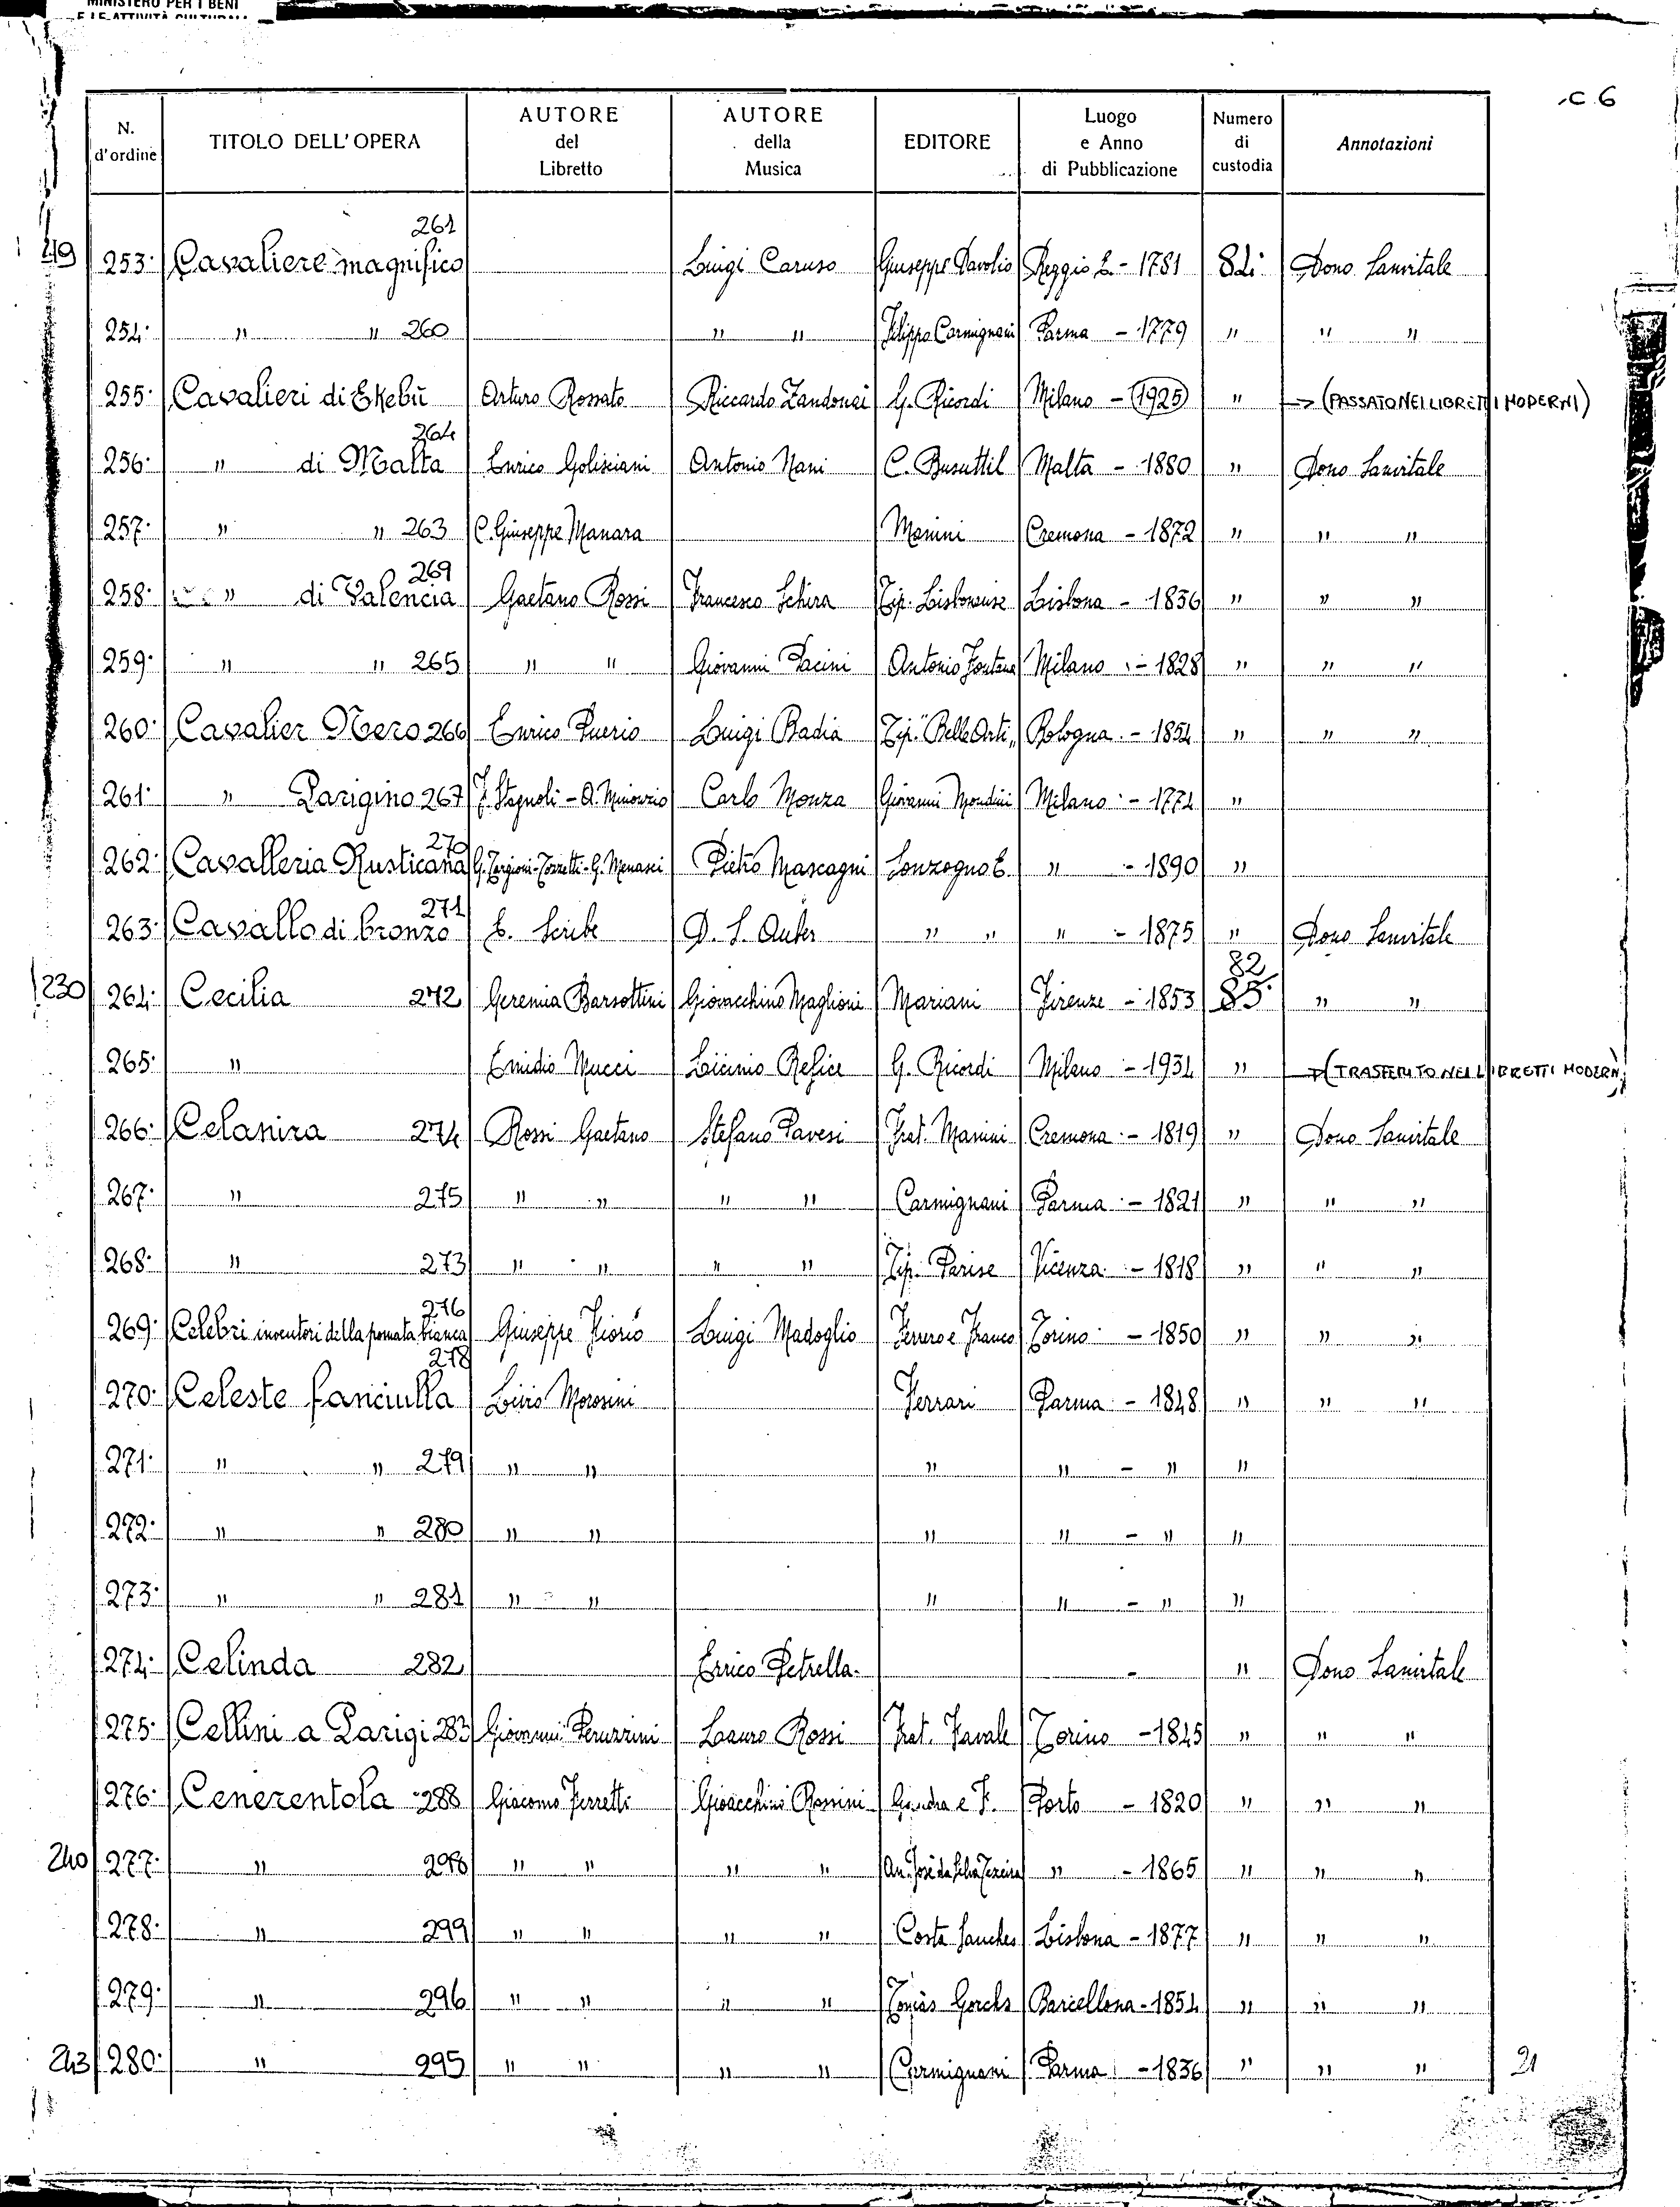 MINISTERO PER I BENI
E LE ATTIVITÀ CULTURALI
c. 6
N. d'ordine | TITOLO DELL'OPERA | AUTORE del Libretto | AUTORE della Musica | EDITORE | Luogo e Anno di Pubblicazione | Numero di custodia | Annotazioni
253. Cavaliere magnifico 261 | | Luigi Caruso | Giuseppe Davolio | Reggio E. - 1781 | 84. | Dono Sanvitale
254. " " 260 | | " " | Filippo Carmignani | Parma - 1779 | " | " "
255. Cavalieri di Ekebù | Arturo Rossato | Riccardo Zandonai | G. Ricordi | Milano - 1925 | " | → (PASSATO NEI LIBRETTI MODERNI)
256. " di Malta 264 | Enrico Golisciani | Antonio Nani | C. Busuttil | Malta - 1880 | " | Dono Sanvitale
257. " " 263 | C. Giuseppe Manara | | Manini | Cremona - 1872 | " | " "
258. " di Valencia 269 | Gaetano Rossi | Francesco Schira | Tip. Lisbonense | Lisbona - 1836 | " | " "
259. " " 265 | " " | Giovanni Pacini | Antonio Fontana | Milano - 1828 | " | " "
260. Cavalier Nero 266 | Enrico Puerio | Luigi Badia | Tip. "Belle Arti" | Bologna - 1854 | " | " "
261. " Parigino 267 | Carlo Monza | Giovanni Mondini | Milano - 1774 | "
262. Cavalleria Rusticana 270 | G. Targioni-Tozzetti - G. Menasci | Pietro Mascagni | Sonzogno E. | " - 1890 | "
263. Cavallo di bronzo 271 | E. Scribe | D. S. Auber | " " | " - 1875 | " | Dono Sanvitale
230 264. Cecilia 272 | Geremia Barsottini | Giovacchino Maglioni | Mariani | Firenze - 1853 | 82 85. | " "
265. " | Emidio Mucci | Licinio Refice | G. Ricordi | Milano - 1934 | " | → (TRASFERITO NEI LIBRETTI MODERNI)
266. Celanira 274 | Rossi Gaetano | Stefano Pavesi | Frat. Manini | Cremona - 1819 | " | Dono Sanvitale
267. " 275 | " " | " " | Carmignani | Parma - 1821 | " | " "
268. " 273 | " " | " " | Tip. Parise | Vicenza - 1818 | " | " "
269. Celebri inventori della pomata bianca 276 | Giuseppe Fiorio | Luigi Madoglio | Ferrero e Franco | Torino - 1850 | " | " "
270. Celeste fanciulla 278 | Livio Morosini | | Ferrari | Parma - 1848 | " | " "
271. " " 279 | " " | | " | " - " | "
272. " " 280 | " " | | " | " - " | "
273. " " 281 | " " | | " | " - " | "
274. Celinda 282 | | Errico Petrella | | - | " | Dono Sanvitale
275. Cellini a Parigi 283 | Giovanni Peruzzini | Lauro Rossi | Frat. Favale | Torino - 1845 | " | " "
276. Cenerentola 288 | Giacomo Ferretti | Gioacchino Rossini | Gandra e F. | Porto - 1820 | " | " "
240 277. " 298 | " " | " " | An. José da Silva Teixeira | " - 1865 | " | " "
278. " 299 | " " | " " | Costa Sanches | Lisbona - 1877 | " | " "
279. " 296 | " " | " " | Tomàs Gorchs | Barcellona - 1854 | " | " "
243 280. " 295 | " " | " " | Carmignani | Parma - 1836 | " | " "
21